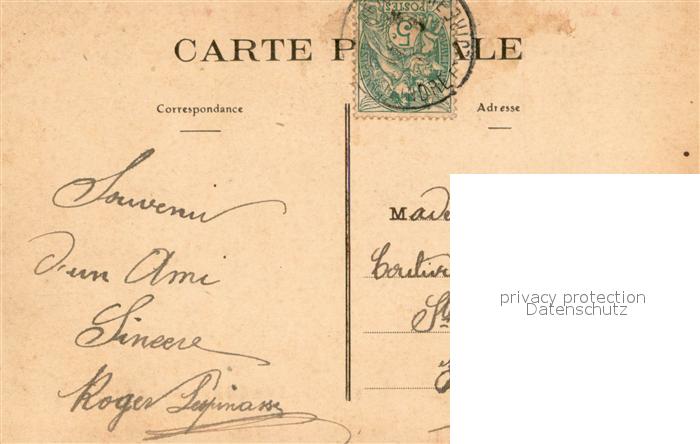 CARTE P ALE
POSTES
5c
Correspondance
Adresse
Souvenir
d'un Ami
Sincere
Roger Lespinasse
Made
Coutur
St
privacy protection
Datenschutz